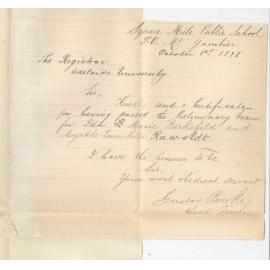 Square Mile Public School
P.O. Mt. Gambier
October 1st 1898
The Registrar
Adelaide University
Sir,
Kindly send a Certificate
for having passed the Preliminary Exam
for Ida Marie Berkefeld and
Myrtle Ruwoldt
I have the honour to be
Sir,
Your most obedient servant
Gustav
Head Teacher